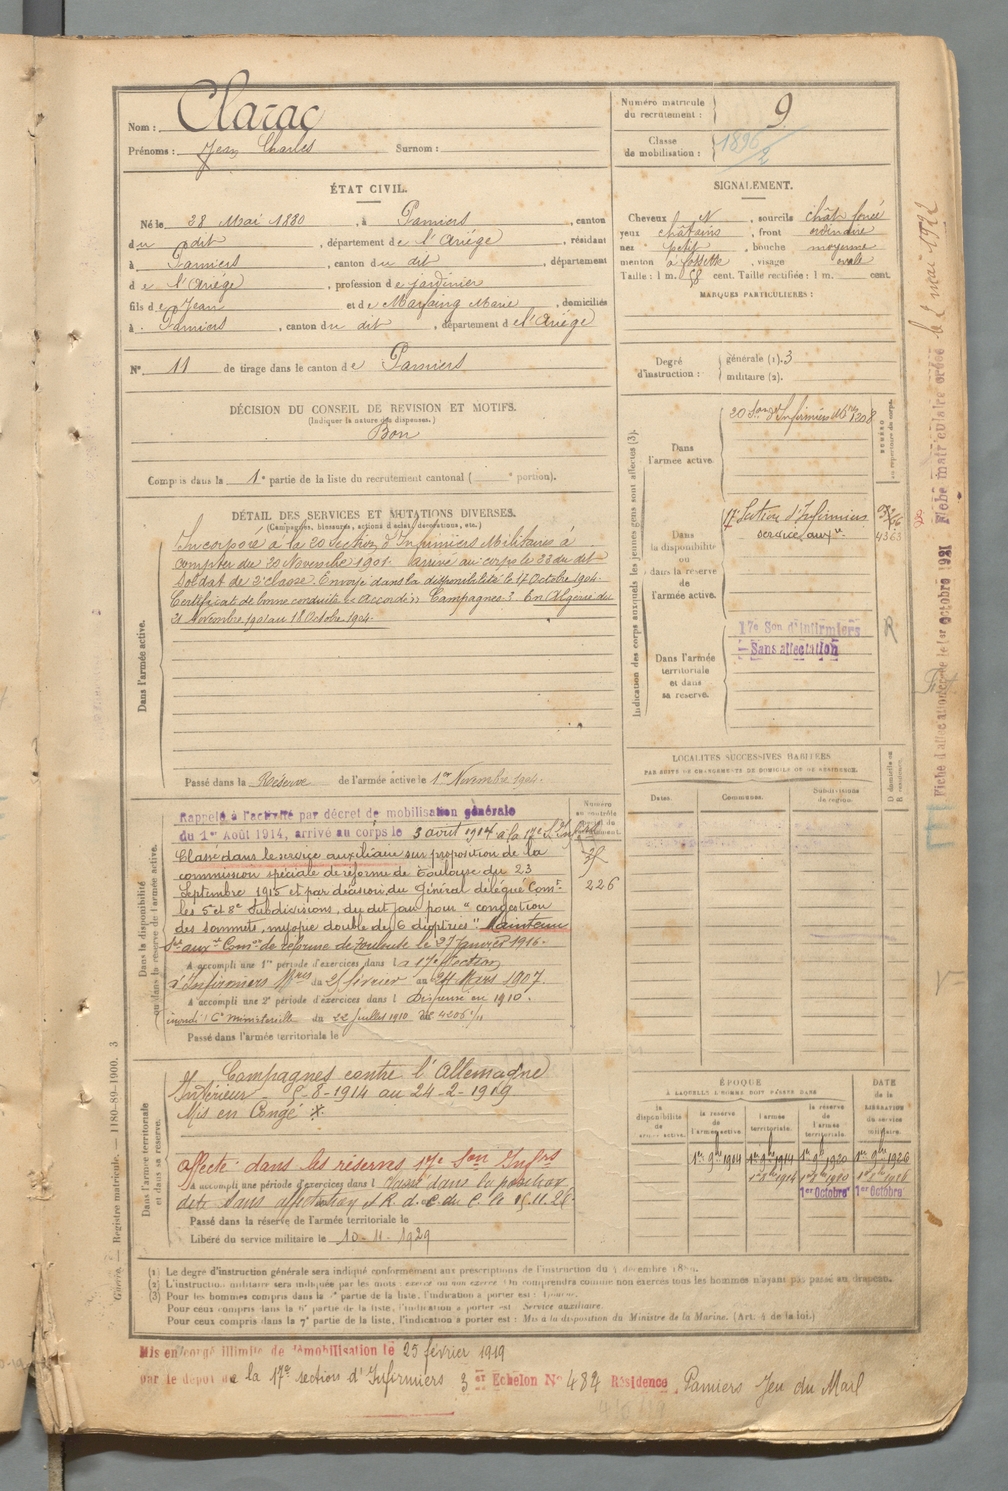 Nom : Clarac
Prénoms : Jean Charles Surnom :
Numéro matricule du recrutement : 9
Classe de mobilisation : 1896/2
ÉTAT CIVIL.
Né le 28 Mai 1880, à Pamiers, canton
du dit, département de l'Ariège, résidant
à Pamiers, canton du dit, département
de l'Ariège, profession de jardinier
fils de Jean et de Marfaing Marie, domiciliés
à Pamiers, canton du dit, département de l'Ariège
N° 11 de tirage dans le canton de Pamiers
SIGNALEMENT.
Cheveux N, sourcils chât. foncé
yeux châtains, front ordinaire
nez petit, bouche moyenne
menton à fossette, visage ovale
Taille : 1 m. 58 cent. Taille rectifiée : 1 m. cent.
MARQUES PARTICULIÈRES :
Degré d'instruction : générale (1). 3
militaire (2).
DÉCISION DU CONSEIL DE REVISION ET MOTIFS.
(Indiquer la nature des dispenses.)
Bon
Compris dans la 1e partie de la liste du recrutement cantonal ( e portion).
DÉTAIL DES SERVICES ET MUTATIONS DIVERSES.
(Campagnes, blessures, actions d'éclat, décorations, etc.)
Dans l'armée active.
Incorporé à la 20 Section d'Infirmiers Militaires à
compter du 20 Novembre 1901. arrivé au corps le 22 du dit
Soldat de 2e classe. Envoyé dans la disponibilité le 17 Octobre 1904.
Certificat de bonne conduite "Accordé". Campagnes : En Algérie du
21 Novembre 1901 au 18 Octobre 1904.
Passé dans la Réserve de l'armée active le 1er Novembre 1904.
Indication des corps auxquels les jeunes gens sont affectés (3).
NUMÉRO au répertoire du corps.
Dans l'armée active.
20 Son d'Infirmiers Mres 1208
Dans la disponibilité ou dans la réserve de l'armée active.
17e Section d'Infirmiers
service auxre
4363
Dans l'armée territoriale et dans sa réserve.
17e Son d'infirmiers
Sans affectation
R
LOCALITÉS SUCCESSIVES HABITÉES
PAR SUITE DE CHANGEMENTS DE DOMICILE OU DE RÉSIDENCE.
Dates. Communes. Subdivisions de région. D. domicile ou R. résidence.
Dans la disponibilité ou dans la réserve de l'armée active.
Rappelé à l'activité par décret de mobilisation générale
du 1er Août 1914, arrivé au corps le 3 août 1914 à la 17e S. Inf
Classé dans le service auxiliaire sur proposition de la
commission spéciale de réforme de Toulouse du 23
Septembre 1915 et par décision du Général délégué Comt
les 5e et 8e Subdivisions, du dit jour pour "congestion
des sommets, myopie double de 6 dioptries". Maintenu
Sce auxre Comon de réforme de Toulouse le 27 Janvier 1916.
226
A accompli une 1re période d'exercices dans la 17e Section
d'Infirmiers Mres du 25 février au 24 Mars 1907.
A accompli une 2e période d'exercices dans l Dispensé en 1910.
Ce ministérielle du 22 Juillet 1910
Passé dans l'armée territoriale le
Dans l'armée territoriale et dans sa réserve.
Campagnes contre l'Allemagne
Intérieur 5-8-1914 au 24-2-1919
Mis en Congé
Affecté dans les réserves 17e Son Infrs
A accompli une période d'exercices dans l Classé dans la position
dite sans affectation
Passé dans la réserve de l'armée territoriale le
Libéré du service militaire le 10-11-1929
ÉPOQUE
À LAQUELLE L'HOMME DOIT PASSER DANS
la disponibilité de l'armée active.
la réserve de l'armée active.
l'armée territoriale.
la réserve de l'armée territoriale.
DATE de la LIBÉRATION du service militaire.
1er 9bre 1904 1er 9bre 1914 1er 9bre 1920 1er 9bre 1926
1er Octobre 1er Octobre
(1) Le degré d'instruction générale sera indiqué conformément aux prescriptions de l'instruction du 4 décembre 1889.
(2) L'instruction militaire sera indiquée par les mots : exercé ou non exercé. On comprendra comme non exercés tous les hommes n'ayant pas passé au drapeau.
(3) Pour les hommes compris dans la 4e partie de la liste, l'indication à porter est :
Pour ceux compris dans la 6e partie de la liste, l'indication à porter est : Service auxiliaire.
Pour ceux compris dans la 7e partie de la liste, l'indication à porter est : Mis à la disposition du Ministre de la Marine. (Art. 4 de la loi.)
Guerre. — Registre matricule. — 1180-89-1900. 3
Mis en congé illimité de démobilisation le 25 février 1919
par le dépôt de la 17e section d'Infirmiers 3e Echelon N° 482 Résidence Pamiers Jeu du Mail
Fiche d'affectation créée le 1er octobre 1921
Fiche matriculaire créée le 2 mai 1922